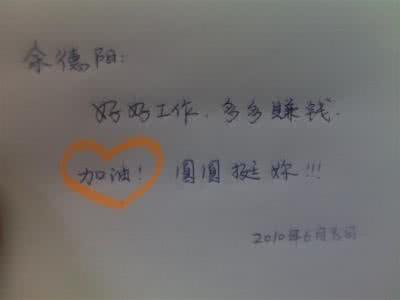 余德阳：
好好工作、多多賺钱.
加油！ 圆圆挺妳!!!
2010年6月8日